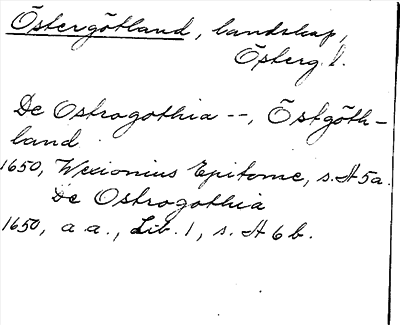 Östergötland, landskap,
Österg. l.
De Ostrogothia --, Östgöth-
land
1650, Wexionius Epitome, s. A 5a.
De Ostrogothia
1650, a a., Lib. 1, s. A 6 b.